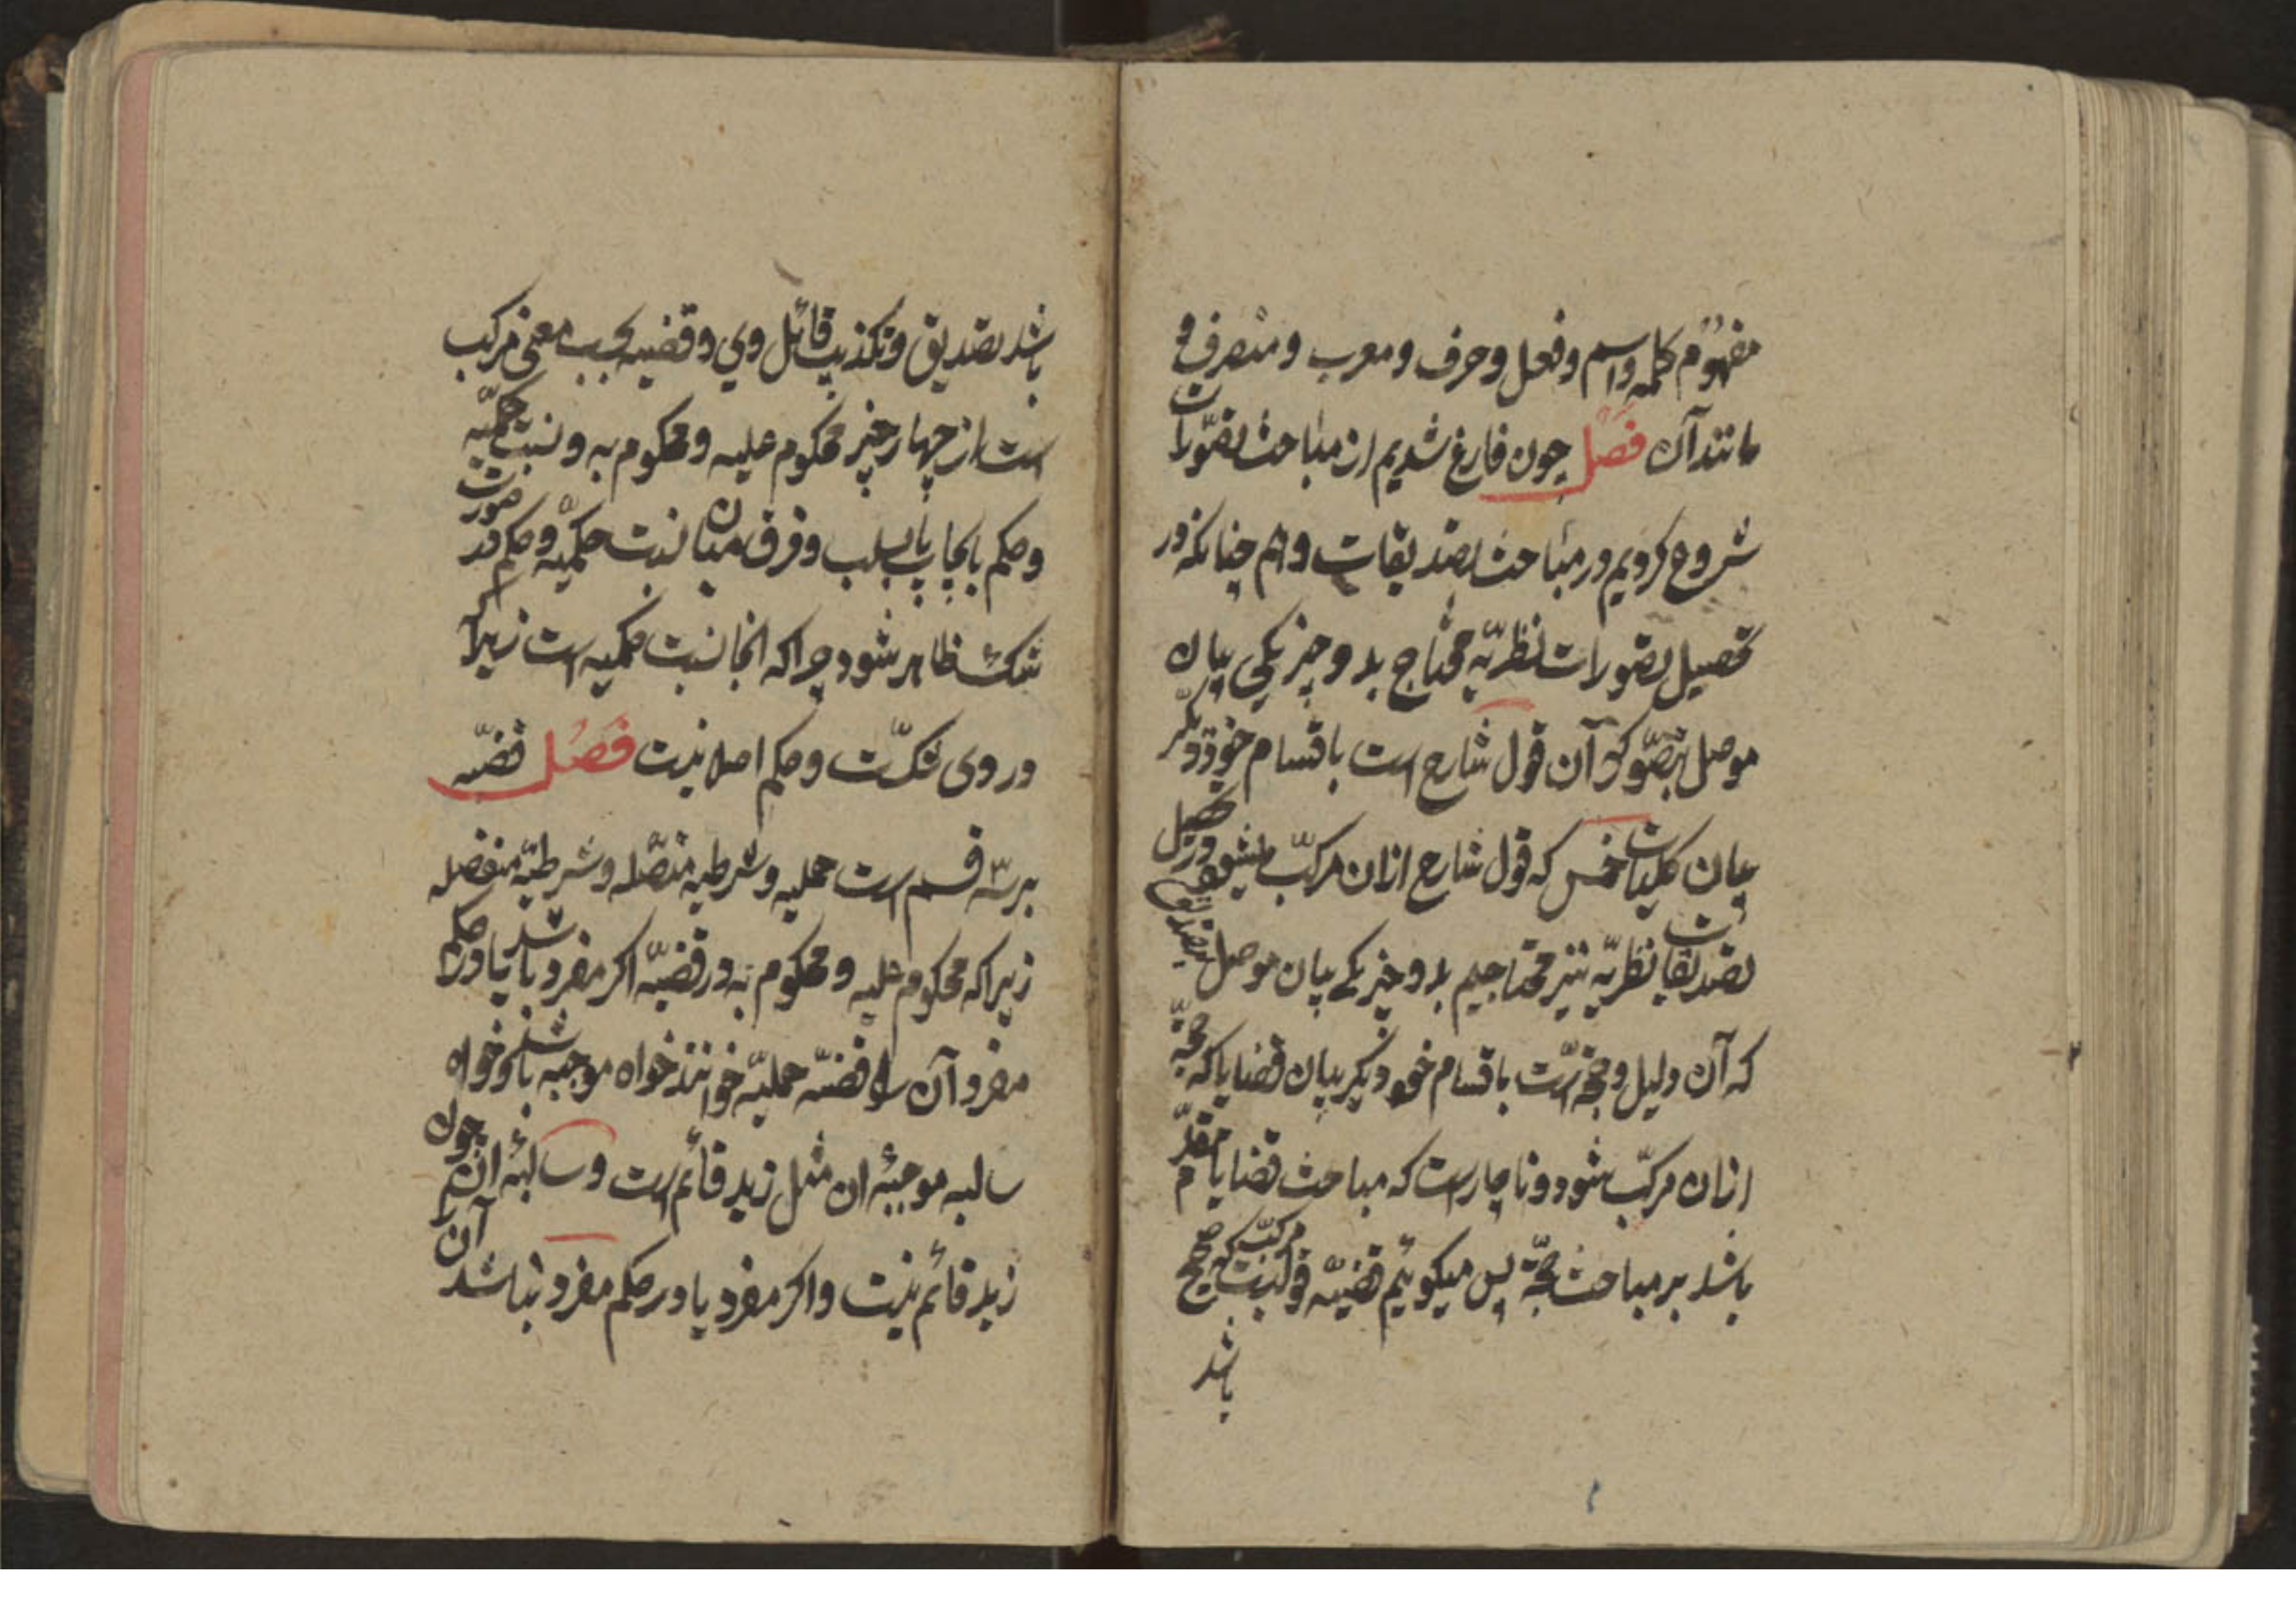 مفهوم کلمه و اسم و فعل و حرف و معرب و منصرف و
مانند آن فصل چون فارغ شدیم از مباحث تصورات
شروع کردیم در مباحث تصدیقات و هم چنانکه در
تحصیل تصورات نظریه محتاج بدو چیز یکی بیان
موصل بتصور که آن قول شارح است باقسام خود و دیگر
بیان کلیات خمس که قول شارح ازان مرکب میشود در تحصیل
تصدیقات نظریه نیز محتاجیم بدو چیز یکی بیان موصل بتصدیق
که آن دلیل و حجة است باقسام خود و دیگر بیان قضایا که حجة
ازان مرکب شود و ناچار است که مباحث قضایا مقدم
باشد بر مباحث حجة پس میکوئیم قضیه قولیست مرکب که صحیح
باشد
باشد تصدیق و تکذیب قائل وی و قضیه بحسب معنی مرکب
است از چهار چیز محکوم علیه و محکوم به و نسبت حکمیه
و حکم بایجاب یا بسلب و فرق میان نسبت حکمیه و حکم در صورت
شک ظاهر شود چرا که انجا نسبت حکمیه است زیرا که
در وی شکست و حکم اصلا نیست فصل قضیه
بر سه قسم است حملیه و شرطیه متصله و شرطیه منفصله
زیرا که محکوم علیه و محکوم به در قضیه اکر مفرد باشد یا در حکم
مفرد آن را قضیه حملیه خوانند خواه موجبه باشد و خواه
سالبه موجبۀ ان مثل زید قائم است و سالبۀ ان چون
زید قائم نیست و اکر مفرد یا در حکم مفرد نباشد آن را